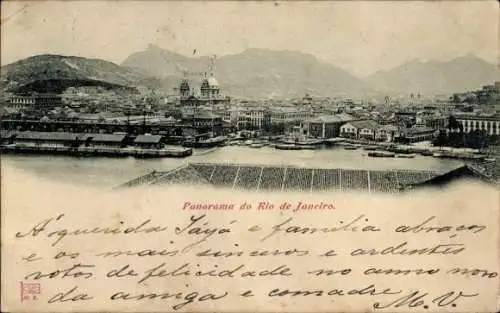 Panorama do Rio de Janeiro.
A' querida Yayá e familia abraços
e os mais sinceros e ardentes
votos de felicidade no anno novo
da amiga e comadre M. V.